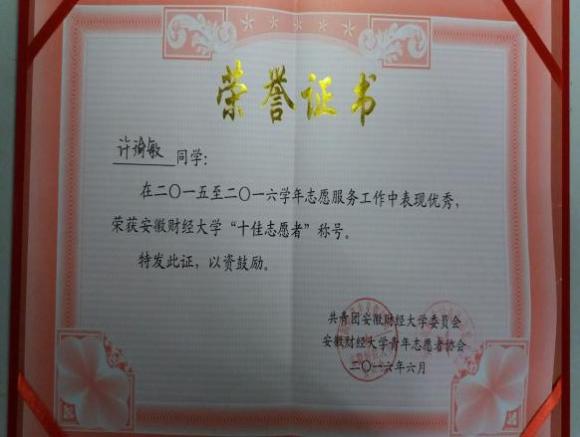 荣誉证书
许瑜敏 同学：
在二〇一五至二〇一六学年志愿服务工作中表现优秀，
荣获安徽财经大学“十佳志愿者”称号。
特发此证，以资鼓励。
共青团安徽财经大学委员会
安徽财经大学青年志愿者协会
二〇一六年六月